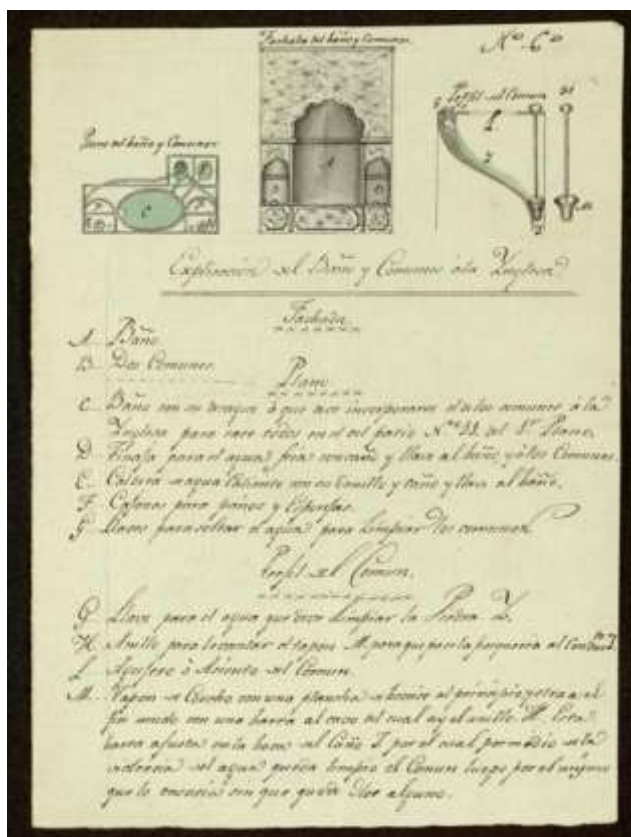 Fachada del baño y Comunes
Nº 6º
Perfil del Comun
Plano del baño y Comunes
Explicacion del Baño y Comunes á la Ynglesa
Fachada
A Baño
B Dos Comunes
Plano
C Baño con su desague q que deve incorporarse el de los comunes á la
Ynglesa para caer todos en el del patio Nº del 1r Plano.
D Tinaja para el agua fria con caño y llave al baño, y á los Comunes.
E Caldera de agua caliente con su tornillo y caño y llave al baño.
F Cajones para paños y Esponjas.
G Llaves para soltar el agua para limpiar los comunes
Perfil del Comun.
G Llave para el agua que deve limpiar la Piedra
H Anillo para levantar el tapon M para que pase la porqueria al
L Agujero ó Asiento del Comun.
M Tapon de Corcho con una plancha al principio y otra al
fin unido con una barra al cavo del cual ay el anillo H. Esta
barra ajusta en la boca del Caño por el cual por medio de la
del agua queda limpio el Comun luego por el mismo
que lo sin que quede olor alguno.